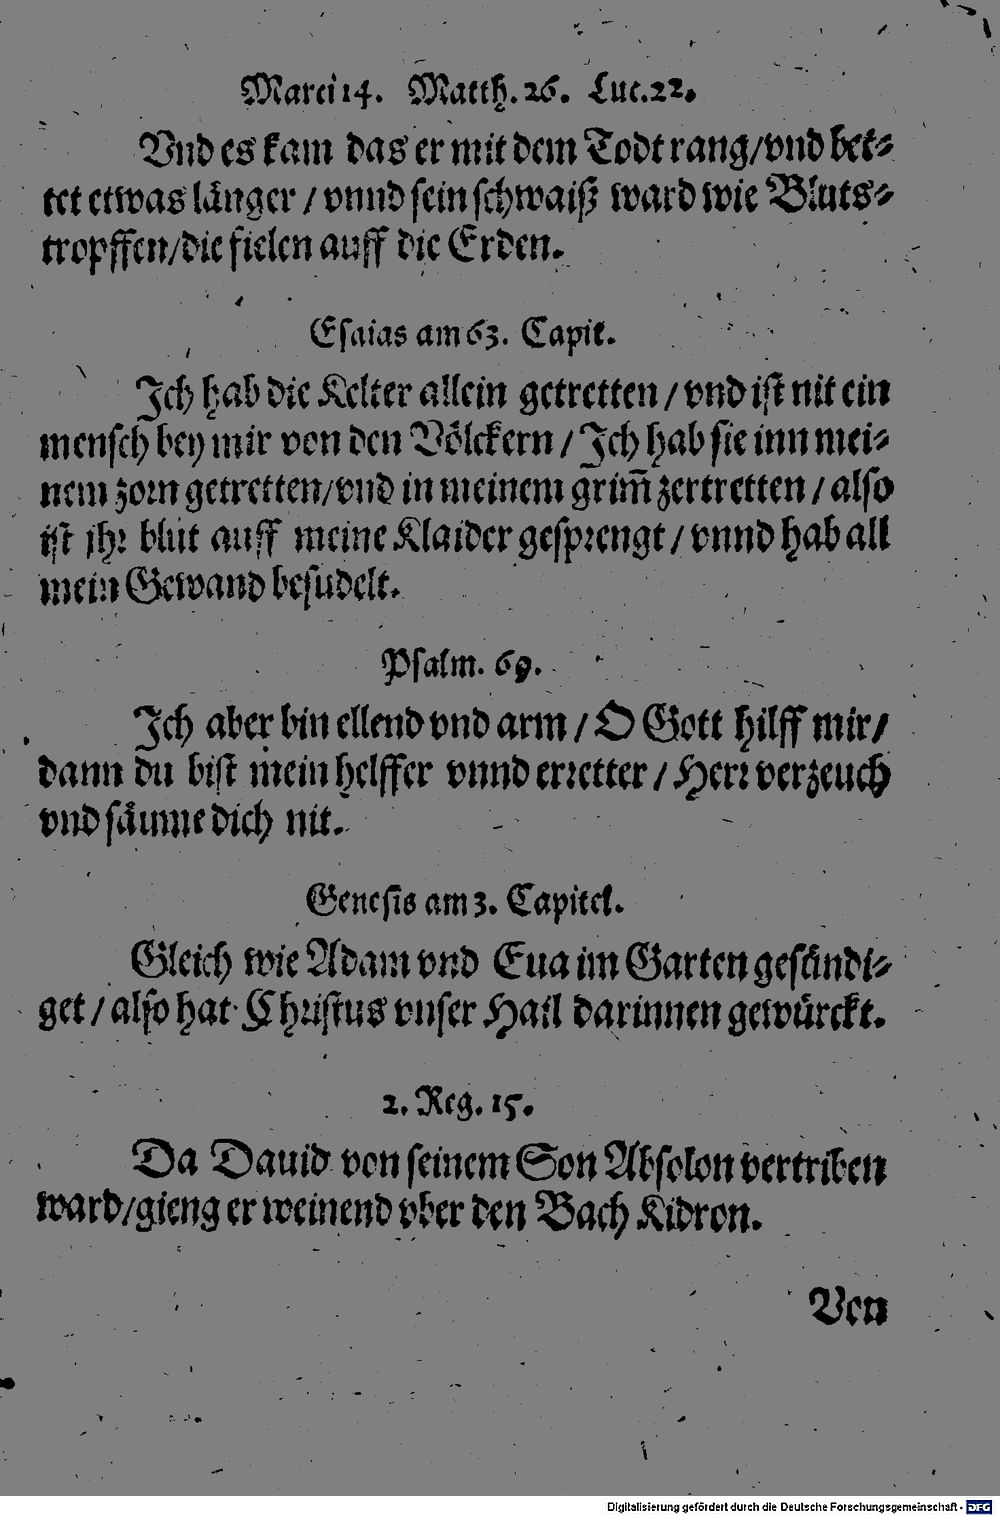 Marci 14. Matth. 26. Luc. 22.
Vnd es kam das er mit dem Todt rang/vnd bet-
tet etwas länger / vnnd sein schwaiß ward wie Bluts-
tropffen/die fielen auff die Erden.
Esaias am 63. Capit.
Ich hab die Kelter allein getretten / vnd ist nit ein
mensch bey mir von den Völckern / Ich hab sie inn mei-
nem zorn getretten/vnd in meinem grim̃ zertretten / also
ist jhr blut auff meine Klaider gesprengt / vnnd hab all
mein Gewand besudelt.
Psalm. 69.
Ich aber bin ellend vnd arm / O Gott hilff mir/
dann du bist mein helffer vnnd erretter / Herr verzeuch
vnd säume dich nit.
Genesis am 3. Capitel.
Gleich wie Adam vnd Eua im Garten gesündi-
get / also hat Christus vnser Hail darinnen gewürckt.
2. Reg. 15.
Da Dauid von seinem Son Absolon vertriben
ward/gieng er weinend vber den Bach Kidron.
Von
Digitalisierung gefördert durch die Deutsche Forschungsgemeinschaft - DFG